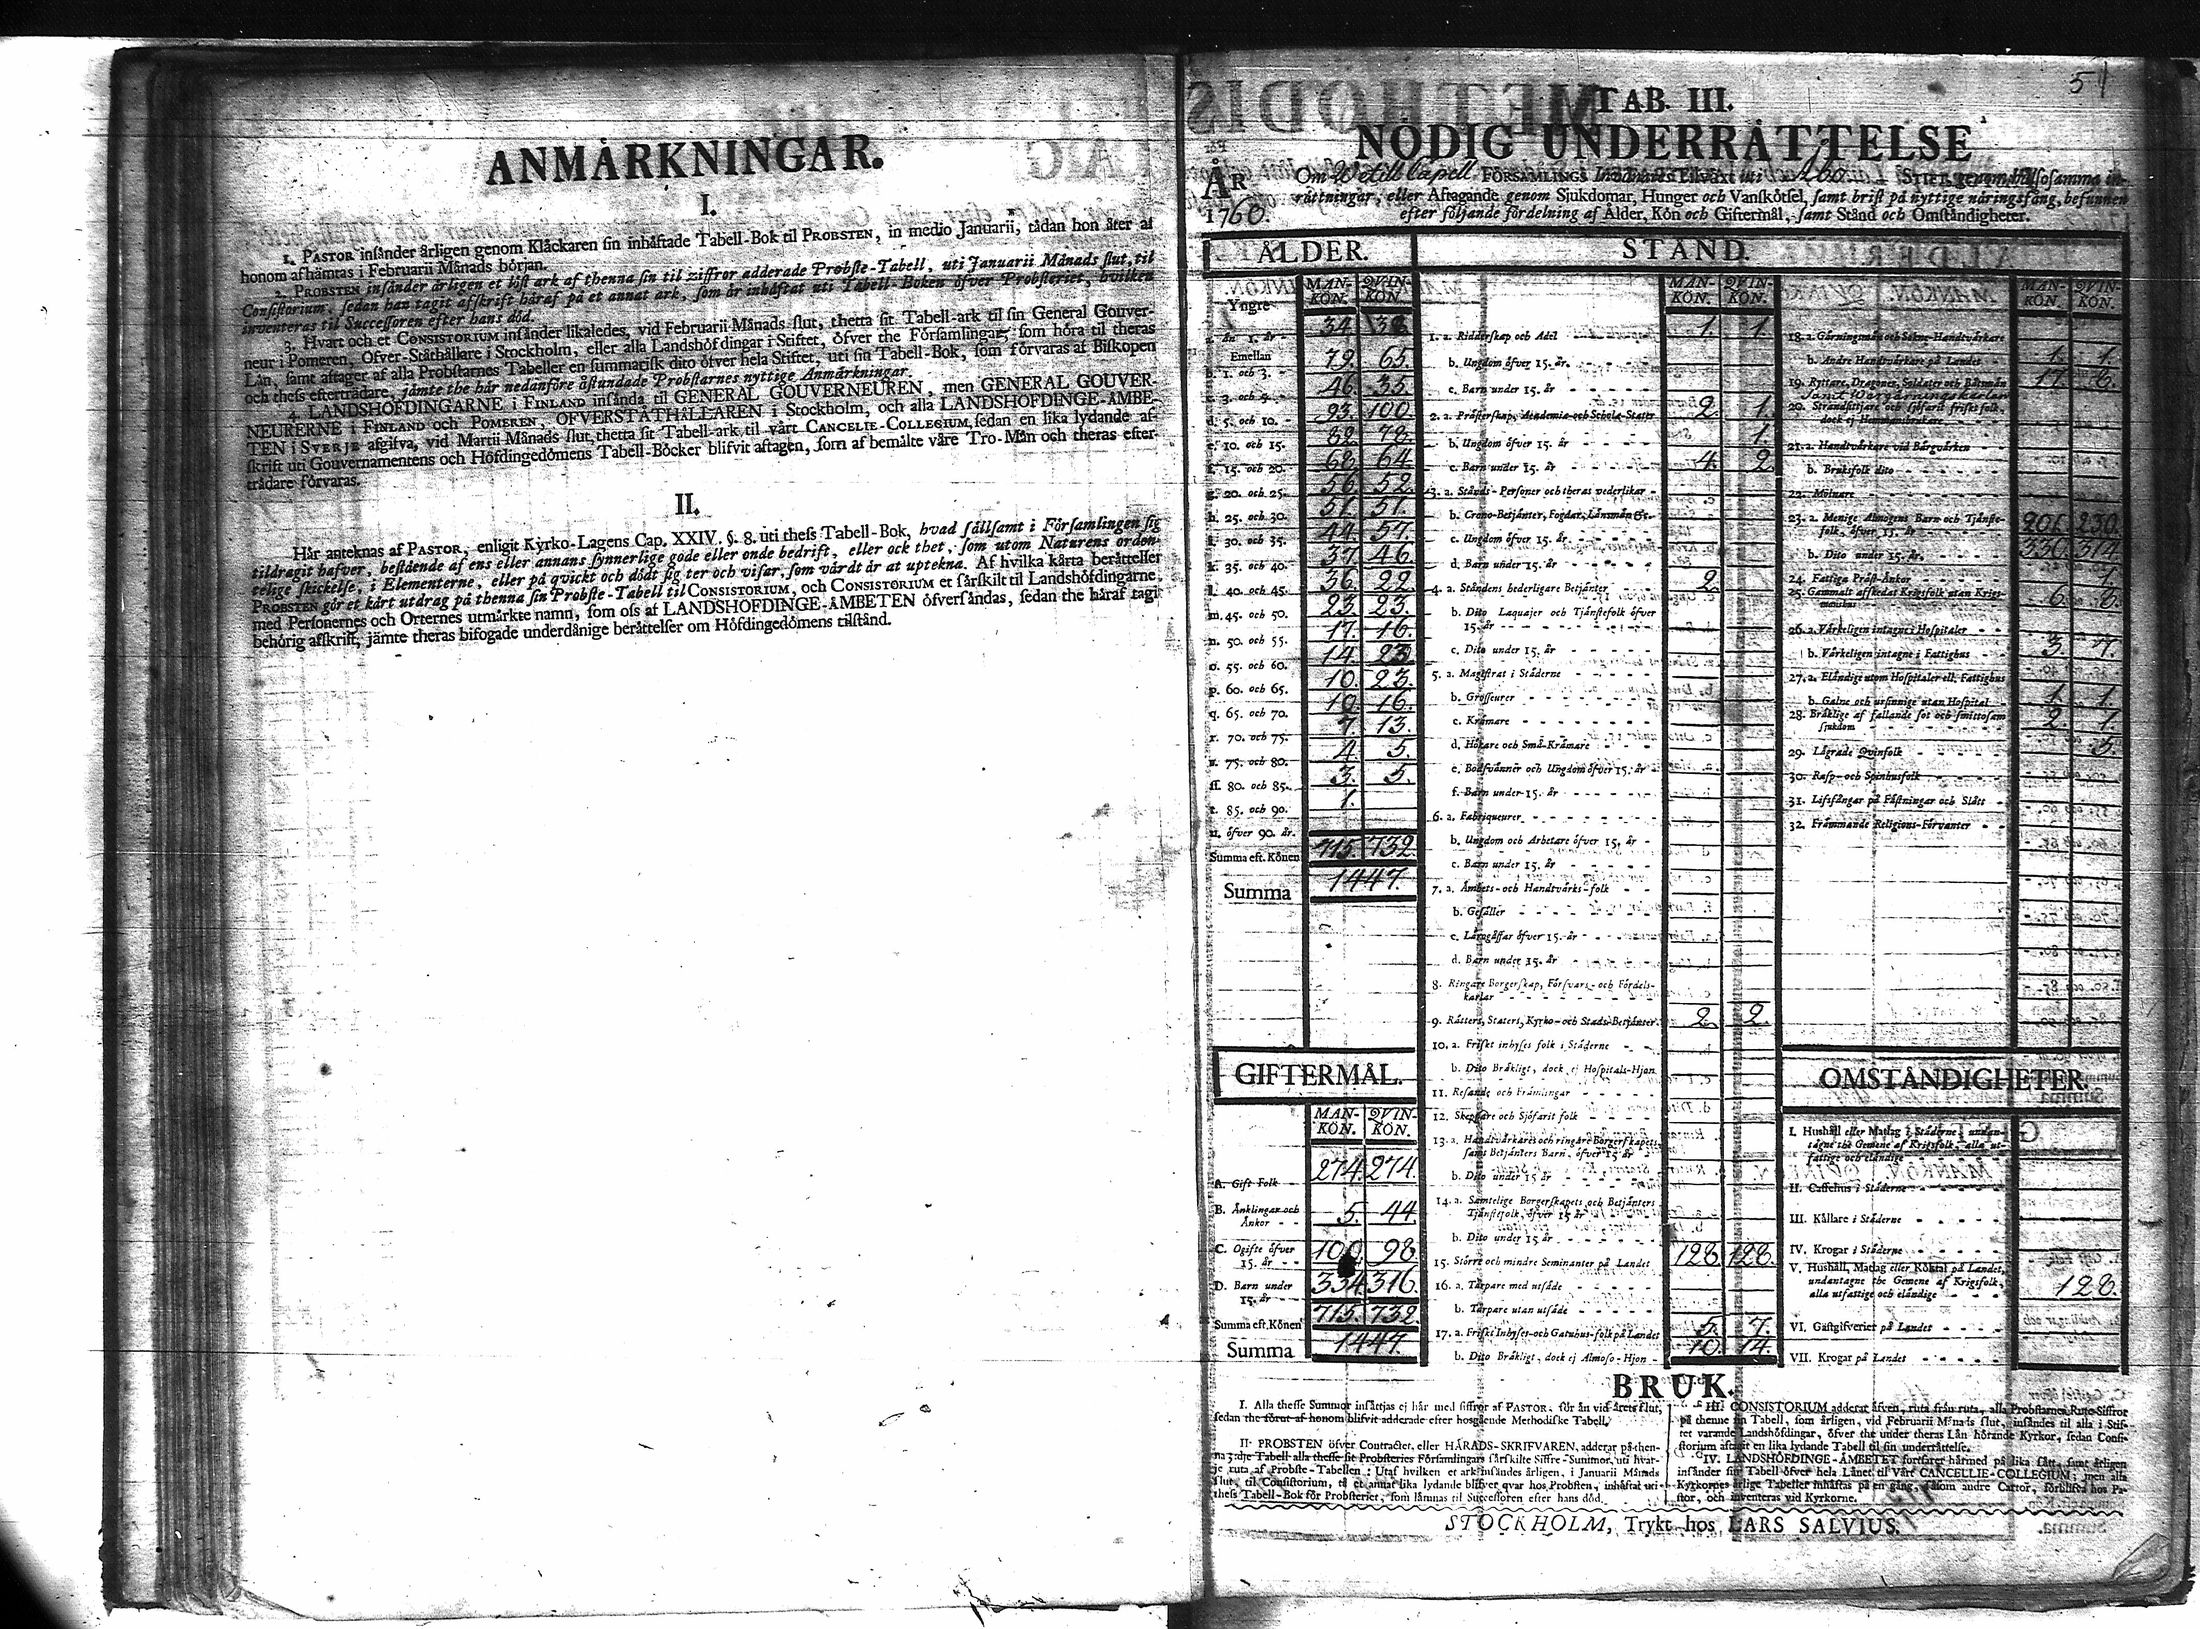 ANMÅRKNINGAR.
I.
1. PASTOR insånder årligen genom Klåckaren sin inhåftade Tabell-Bok til PROBSTEN, in medio Januarii, tådan hon åter af
honom afhåmtas i Februarii Månads början.
2. PROBSTEN insånder årligen et löst ark af thenna sin til ziffror adderade Probste-Tabell, uti Januarii Månads slut, til
Consistorium, sedan han tagit afskrift håraf på et annat ark, som år inhåftat uti Tabell-Boken öfver Probsteriet, hvilken
inventeras til Successoren efter hans död.
3. Hvart och et CONSISTORIUM insånder likaledes, vid Februarii Månads slut, thetta sit Tabell-ark til sin General Gouver-
neur i Pomeren, Öfver-Ståthållare i Stockholm, eller alla Landshöfdingar i Stiftet, öfver the Församlingar, som höra til theras
Lån, samt aftager af alla Probstarnes Tabeller en summarisk dito öfver hela Stiftet, uti sin Tabell-Bok, som förvaras af Biskopen
och thess eftertrådare, jåmte the hår nedanföre åstundade Probstarnes nyttige Anmårkningar.
4. LANDSHÖFDINGARNE i FINLAND insånda til GENERAL GOUVERNEUREN, men GENERAL GOUVER-
NEURERNE i FINLAND och POMEREN, ÖFVERSTÅTHÅLLAREN i Stockholm, och alla LANDSHÖFDINGE-ÅMBE-
TEN i SVERJE afgifva, vid Martii Månads slut, thetta sit Tabell-ark til vårt CANCELIE-COLLEGIUM, sedan en lika lydande af-
skrift uti Gouvernamentens och Höfdingedömens Tabell-Böcker blifvit aftagen, som af bemålte våre Tro-Mån och theras efter-
trådare förvaras.
II.
Hår anteknas af PASTOR, enligit Kyrko-Lagens Cap. XXIV. §. 8. uti thess Tabell-Bok, hvad sållsamt i Församlingen sig
tildragit hafver, bestående af ens eller annans synnerlige gode eller onde bedrift, eller ock thet, som utom Naturens orden-
telige skickelse, i Elementerne, eller på qvickt och dödt sig ter och visar, som vårdt år at uptekna. Af hvilka kårta beråttelser
PROBSTEN gör et kårt utdrag på thenna sin Probste-Tabell til CONSISTORIUM, och CONSISTORIUM et sårskilt til Landshöfdingarne,
med Personernes och Orternes utmårkte namn, som oss af LANDSHÖFDINGE-ÅMBETEN öfversåndas, sedan the håraf tagit
behörig afskrift, jåmte theras bifogade underdånige beråttelser om Höfdingedömens tilstånd.
51
TAB. III.
NÖDIG UNDERRÅTTELSE
ÅR 1760.
Om Capell FÖRSAMLINGS Inbyggares Tilvåxt uti Åbo STIFT, genom hålsosamma in-
råttningar, eller Aftagande genom Sjukdomar, Hunger och Vanskötsel, samt brist på nyttige nåringsfång, befunnen
efter följande fördelning af Ålder, Kön och Giftermål, samt Stånd och Omståndigheter.
ÅLDER.
MAN-KÖN. QVIN-KÖN.
Yngre
a. ån 1. år 34. 38
Emellan
b. 1. och 3. 79. 65.
c. 3. och 5. 46. 35.
d. 5. och 10. 93. 100.
e. 10. och 15. 82. 78.
f. 15. och 20. 68. 64.
g. 20. och 25. 56. 52.
h. 25. och 30. 51. 51.
i. 30. och 35. 44. 57.
k. 35. och 40. 37. 46.
l. 40. och 45. 36. 22.
m. 45. och 50. 23. 23.
n. 50. och 55. 17. 16.
o. 55. och 60. 14. 23
p. 60. och 65. 10. 23.
q. 65. och 70. 10. 16.
r. 70. och 75. 7. 13.
s. 75. och 80. 4. 5.
ss. 80. och 85. 3. 5.
t. 85. och 90. 1.
u. öfver 90. år.
Summa eft. Könen 715. 732.
Summa 1447.
GIFTERMÅL.
MAN-KÖN. QVIN-KÖN.
A. Gift Folk 274. 274.
B. Ånklingar och Ånkor 5. 44.
C. Ogifte öfver 15. år 100 98
D. Barn under 15. år 334 316
Summa eft. Könen 715. 732.
Summa 1447.
STÅND.
MAN-KÖN. QVIN-KÖN.
1. a. Ridderskap och Adel 1. 1.
b. Ungdom öfver 15. år.
c. Barn under 15. år
2. a. Pråsterskap, Academiæ och Schole-Stater 2. 1.
b. Ungdom öfver 15. år 1.
c. Barn under 15. år 4. 2.
3. a. Stånds-Personer och theras vederlikar
b. Crono-Betjånter, Fogdar, Långsmån &c.
c. Ungdom öfver 15. år
d. Barn under 15. år
4. a. Ståndens hederligare Betjånter 2.
b. Dito Laquajer och Tjånstefolk öfver
15. år
c. Dito under 15. år
5. a. Magistrat i Ståderne
b. Grosseurer
c. Kråmare
d. Hökare och Små-Kråmare
e. Bodsvånner och Ungdom öfver 15. år
f. Barn under 15. år
6. a. Fabriqueurer
b. Ungdom och Arbetare öfver 15. år
c. Barn under 15. år
7. a. Åmbets- och Handtvårks-folk
b. Gesåller
c. Lårogåssar öfver 15. år
d. Barn under 15. år
8. Ringare Borgerskap, Försvars- och Fördels-
karlar
9. Råtters, Staters, Kyrko- och Stads-Betjånter 2. 2.
10. a. Friskt inhyses folk i Ståderne
b. Dito Bråkligt, dock ej Hospitals-Hjon
11. Resande och Fråmlingar
12. Skeppare och Sjöfarit folk
13. a. Handtvårkares och ringare Borgerskapets
samt Betjånters Barn, öfver 15 år
b. Dito under 15 år
14. a. Samtelige Borgerskapets och Betjånters
Tjånstefolk, öfver 15 år
b. Dito under 15 år
15. Större och mindre Seminanter på Landet 128. 128.
16. a. Tårpare med utsåde
b. Tårpare utan utsåde
17. a. Friskt Inhyses- och Gatuhus-folk på Landet 5. 7.
b. Dito Bråkligt, dock ej Almoso-Hjon 10. 14.
MAN-KÖN. QVIN-KÖN.
18. a. Gårningsmån och Sokne-Handtvårkare
b. Andre Handtvårkare på Landet 1. 1.
19. Ryttare, Dragoner, Soldater och Båtsmån 17. 8.
Samt Wargärningskarlar
20. Strandsittjare och sjöfarit friskt folk,
dock ej Hemmansbrukare
21. a. Handtvårkare vid Bårgvårken
b. Bruksfolk dito
22. Mölnare
23. a. Menige Almogens Barn och Tjånste-
folk, öfver 15. år 201. 230.
b. Dito under 15. år. 330. 314.
24. Fattiga Pråst-Ånkor 1.
25. Gammalt afskedat Krigsfolk utan Krigs-
mannshus 6. 8.
26. a. Vårkeligen intagne i Hospitaler
b. Vårkeligen intagne i Fattighus 3. 7.
27. a. Elåndige utom Hospitaler ell. Fattighus
b. Galne och ursinnige utan Hospital 1. 1.
28. Bråklige af fallande sot och smittosam
sjukdom 2. 1.
29. Lågrade Qvinfolk 5.
30. Rasp- och Spinhusfolk
31. Lifsfångar på Fåstningar och Slått
32. Fråmmande Religions-Förvanter
OMSTÅNDIGHETER.
I. Hushåll eller Matlag i Ståderne, undan-
tagne the Gemene af Krigsfolk, alla ut-
fattige och elåndige
II. Caffehus i Ståderne
III. Kållare i Ståderne
IV. Krogar i Ståderne
V. Hushåll, Matlag eller Röktal på Landet,
undantagne the Gemene af Krigsfolk,
alla utfattige och elåndige 128.
VI. Gåstgifverier på Landet
VII. Krogar på Landet
BRUK.
I. Alla thesse Summor insåttjas ej hår med siffror af PASTOR, för ån vid årets slut,
sedan the förut af honom blifvit adderade efter hosgående Methodiske Tabell.
II. PROBSTEN öfver Contractet, eller HÅRADS-SKRIFVAREN, adderar på then-
na 3:dje Tabell alla thesse sit Probsteries Församlingars sårskilte Siffre-Summor, uti hvar-
je ruta af Probste-Tabellen: Utaf hvilken et ark insåndes årligen, i Januarii Månads
slut, til Consistorium, tå et annat lika lydande blifver qvar hos Probsten, inhåftat uti
thess Tabell-Bok för Probsteriet, som låmnas til Successoren efter hans död.
III. CONSISTORIUM adderar åfven, ruta från ruta, alla Probstarnes Rute-Siffror
på thenne sin Tabell, som årligen, vid Februarii Månads slut, insåndes til alla i Stif-
tet varande Landshöfdingar, öfver the under theras Lån hörande Kyrkor, sedan Consi-
storium aftagit en lika lydande Tabell til sin underråttelse.
IV. LANDSHÖFDINGE-ÅMBETET fortfarer hårmed på lika sått, samt årligen
insånder sin Tabell öfver hela Lånet til Vårt CANCELLIE-COLLEGIUM; men alla
Kyrkornes årlige Tabeller inhåftas på en gång, såsom andre Cartor, förblifva hos Pa-
stor, och inventeras vid Kyrkorne.
STOCKHOLM, Trykt hos LARS SALVIUS.